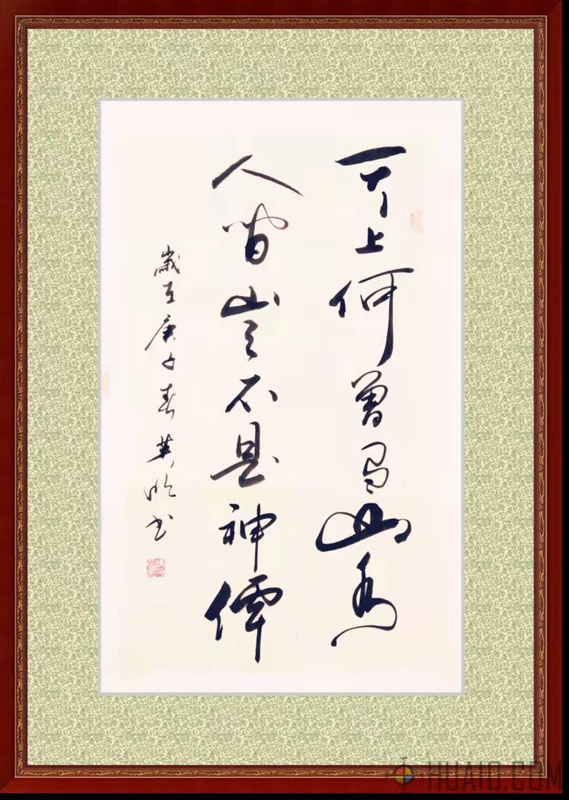 天上何曾有山水
人間豈不是神僊
歲在庚子春英書
HUAID.COM